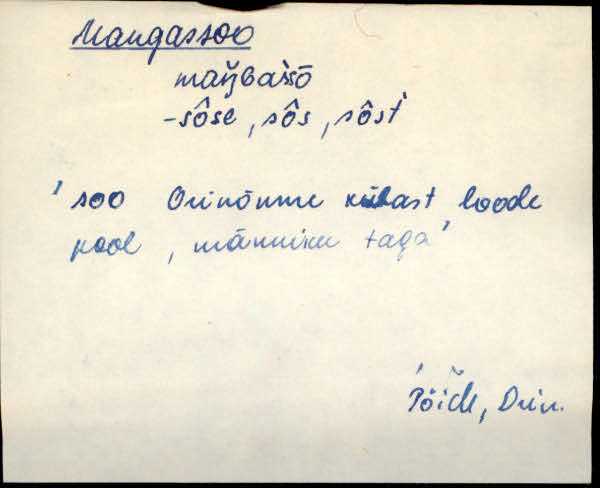 Mangassoo
maŋ̆Gassō
-sôse, sôs, sôst
'soo Orinõmme külast loode
pool, männiku taga'
Pöide, Orin.